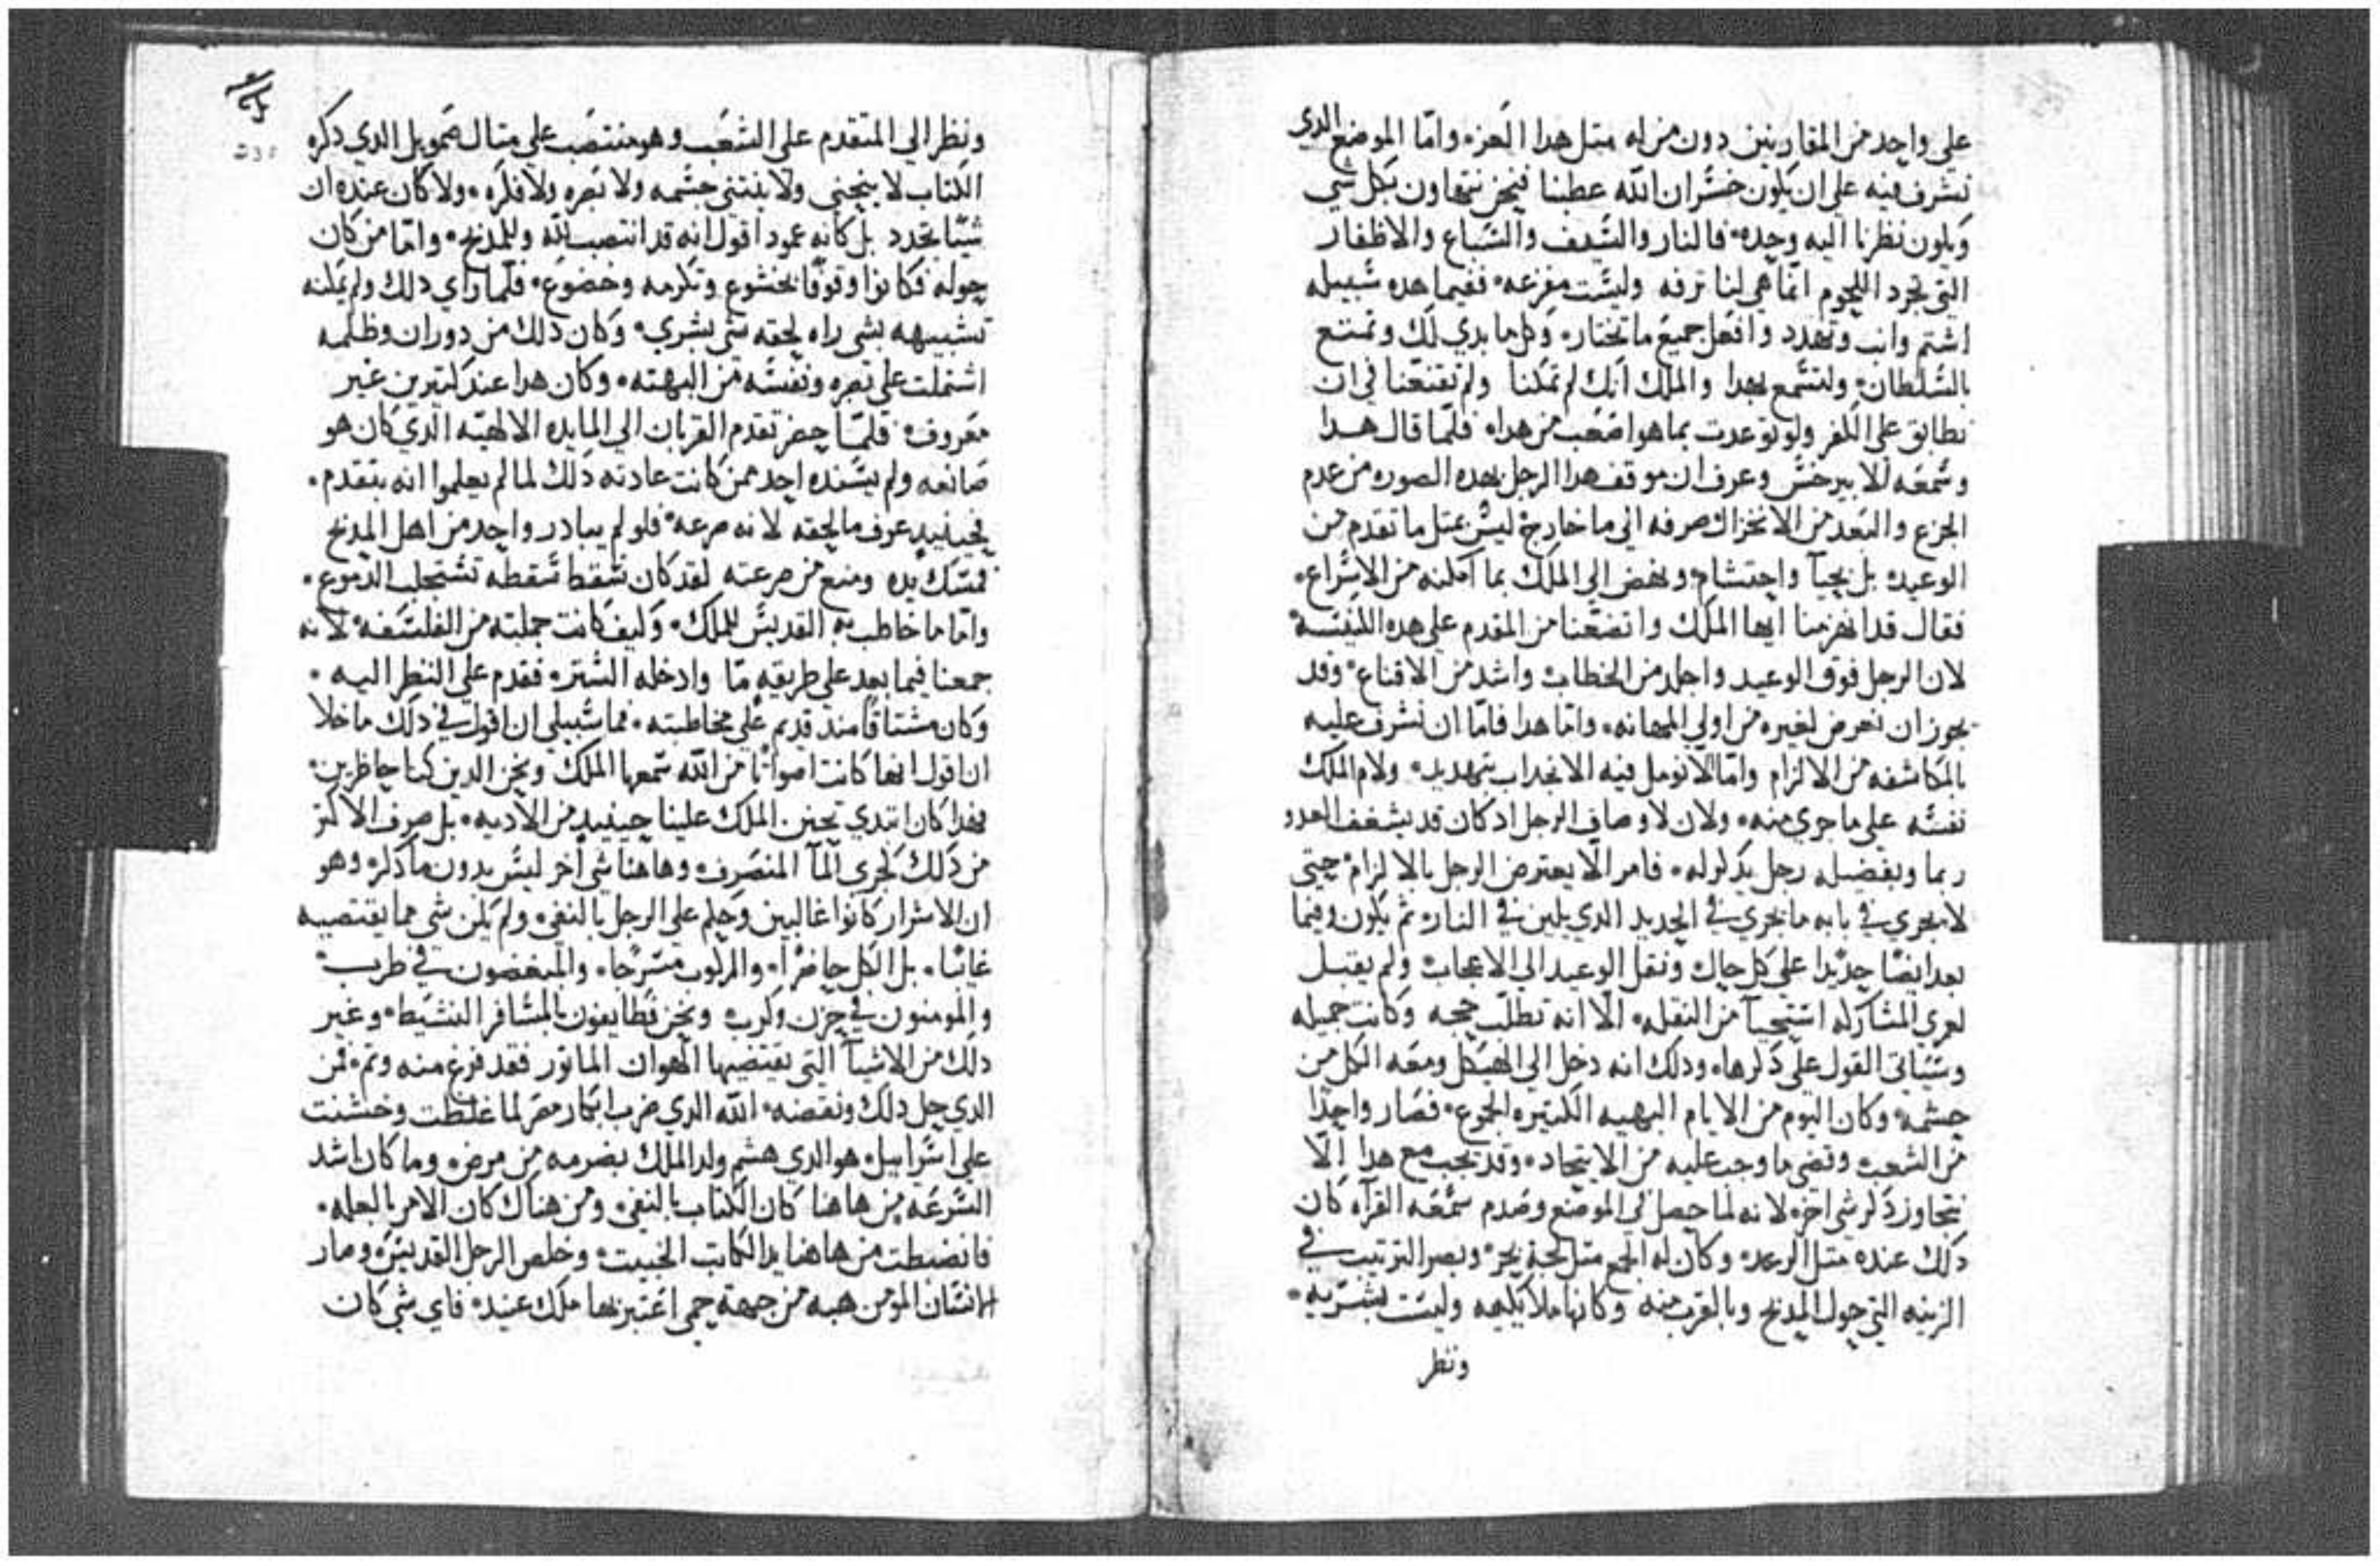 علي واحد من المقارنين دون من له متل هدا العزه واما الموضع الدى
نشرف فيه علي ان يكون خسران الله عطبنا فنحن نتهاون بكل شي
ويكون نظرنا اليه وحده فالنار والسيف والسباع والاظفار
التي تجرد اللحوم انما هي لنا ترفه وليست مفزعه ففيما هده سبيله
اشتم وانب وتهدد وافعل جميع ما تختاره وكل ما بدي لك وتمتع
بالسلطان ولتسمع بهدا والملك انك لم تمكنا ولم تقنعنا في ان
نطابق علي الكفر ولو توعدت بما هو اصعب من هدا فلما قال هدا
وسمعه الابيرخس وعرف ان موقف هدا الرجل بهده الصوره من عدم
الجزع والبعد من الانخزال صرفه الي ما خارج ليس بمتل ما تقدم من
الوعيد بل بحيا واحتشام ونهض الي الملك بما امكنه من الاسراع
فقال قد انهزمنا ايها الملك واتضعنا من المقدم علي هده الكنيسه
لان الرجل فوق الوعيد واجلد من الخطاب واشد من الاقناع وقد
يجوز ان نعرض لغيره من اولي المهانه واما هدا فاما ان نشرف عليه
بالمكاشفه من الالزام واما الا نومل فيه الانجداب بتهديد ولام الملك
نفسه علي ما جري منه ولان لاوصاف الرجل اد كان قد يشغف العدو
ربما وبفضيله رجل يدكر له فامر الا يعترض الرجل بالالزام حتي
لا يجري في بابه ما يجري في الحديد الدي يلين في النار ثم يكون فيما
بعد ايضا حديدا علي كل حال ونقل الوعيد الي الاعجاب ولم يقبل
لعري المشاركه استحيا من النقله الا انه تطلب حجه وكانت جميله
وسياتي القول علي دكرها ودلك انه دخل الي الهيكل ومعه الكل من
حشمه وكان اليوم من الايام البهيه الكتيره الجموع فصار واحدا
من الشعب وقضى ما وجب عليه من الاتحاد وقد يجب مع هدا الا
نتجاوز دكر شي اخر لانه لما حصل في الموضع وصدم سمعه القراه كان
دلك عنده متل الرعد وكان له الجمع متل لجة بحر وبصر الترتيب في
الزينه التي حول المدبح وبالقرب منه وكانها ملايكيه وليست بشريه
وننظر
ونظر الي المتقدم علي الشعب وهو منتصب علي متال صمويل الدي دكره
الكتاب لا ينحني ولا ينتني جسمه ولا بصره ولا فكره ولا كان عنده ان
شيا تجدد بل كانه عمود اقول انه قد انتصب لله وللمدبح واما من كان
حوله فكانوا وقوفا بخشوع وتكرمه وخضوع فلما راي دلك ولم يمكنه
تشبيهه بشي راه لحقه شي بشري وكان دلك من دوران وظلمه
اشتملت علي بصره ونفسه من البهته وكان هدا عند كتيرين غير
معروف فلما حضر تقدم القربان الي المايده الالهيه الدي كان هو
صانعه ولم يسنده احد ممن كانت عادته دلك لما لم يعلموا انه يتقدم
فحينيد عرف ما لحقه لانه صرعه فلو لم يبادر واحد من اهل المدبح
فمسك يده ومنع من صرعته لقد كان سقط سقطه تستجلب الدموع
واما ما خاطب به القديس للملك وكيف كانت جملته من الفلسفه لانه
جمعنا فيما بعد علي طريقه ما وادخله الستر فقدم علي النظر اليه
وكان مشتاقا مند قديم علي مخاطبته فما سبيلي ان اقول في دلك ما خلا
ان اقول انها كانت اصواتا من الله سمعها الملك ونحن الدين كنا حاظرين
فهدا كان ابتدي تحنن الملك علينا حينيد من الاديه بل صرف الاكتر
من دلك كجري الما المنصرف وهاهنا شي اخر ليس بدون ما دكر وهو
ان الاشرار كانوا غالبين وحكم علي الرجل بالنفي ولم يكن شي مما يقتضيه
غايبا بل الكل حاضرا والمركوب مسرجا والمبغضون في طرب
والمومنون في حزن وكرب ونحن نطايفون بالمسافر النشيط وغير
دلك من الاشيا التي يقتضيها الهوان الماتور فقد فرغ منه وتم فمن
الدي حل دلك ونقضه الله الدي ضرب ابكار مصر لما غلظت وخشنت
علي اسراييل هو الدي هشم ولد الملك بضرمه من مرض وما كان اشد
السرعه من هاهنا كان الكتاب بالنفي ومن هناك كان الامر بالعله
فانضبطت من هاهنا يد الكاتب الخبيت وخلص الرجل القديس وصار
الانسان المومن هبه من جهة حمى اعتبر بها ملك عنيد فاي شي كان